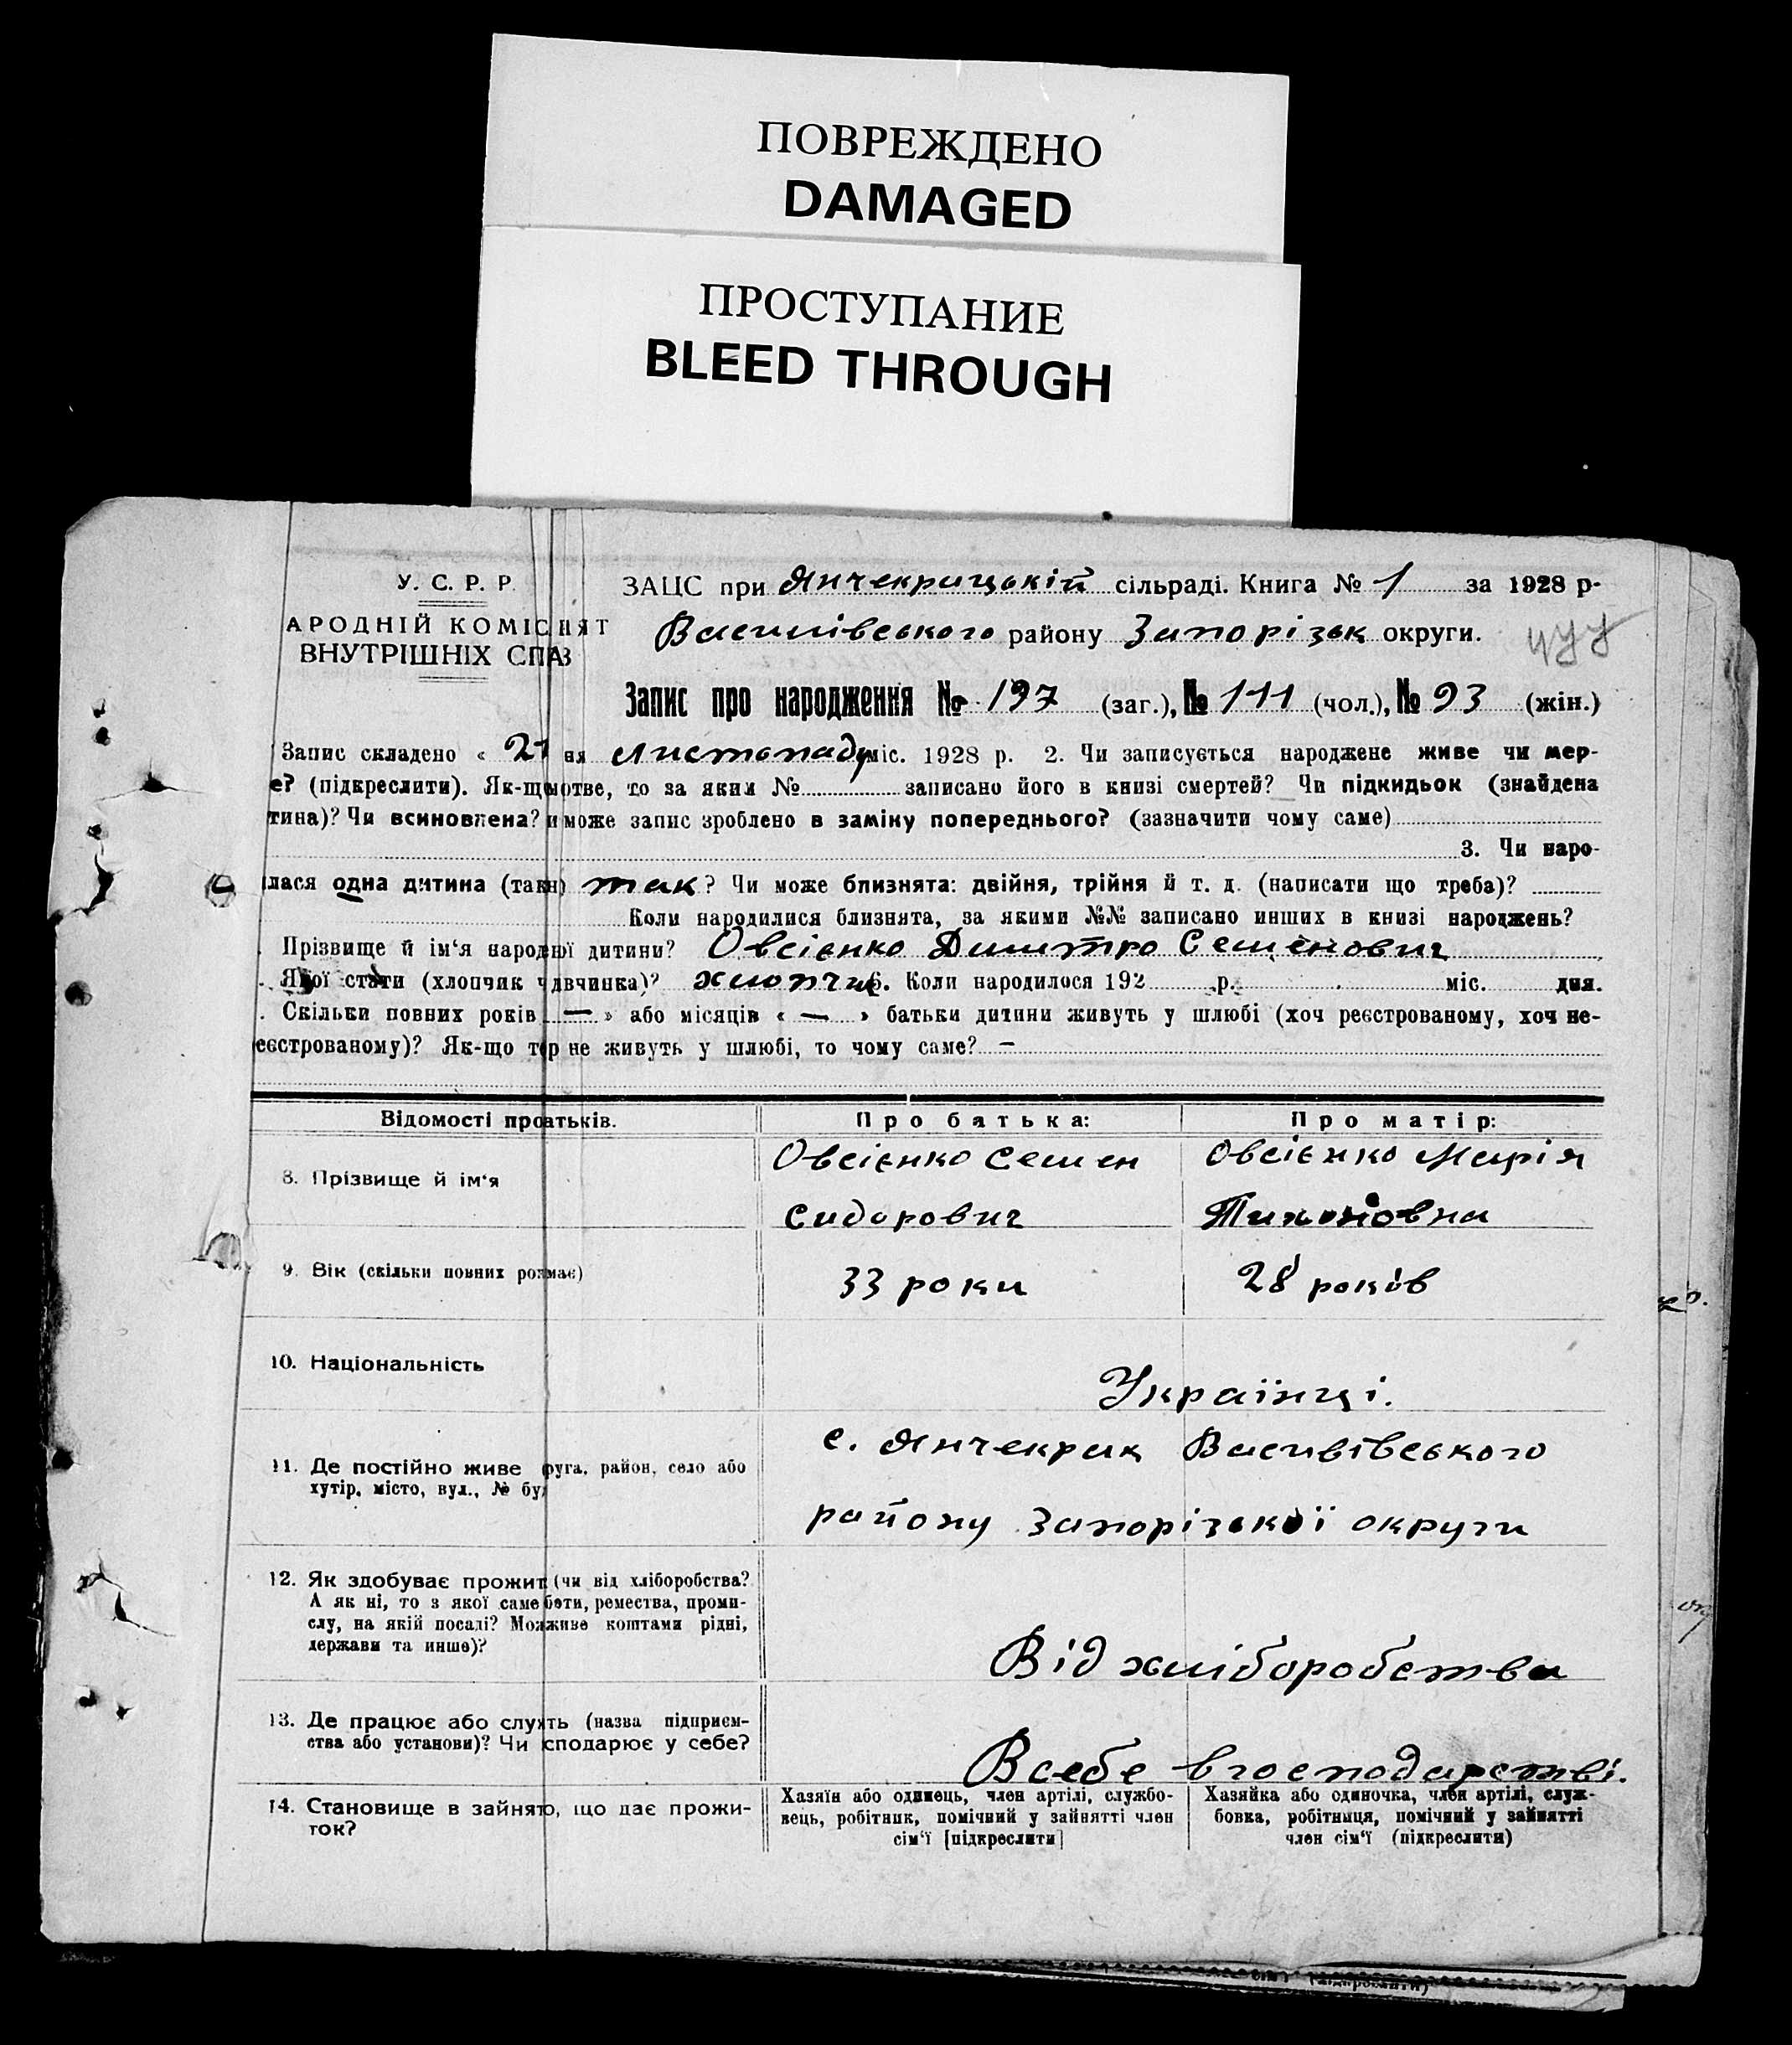 ПОВРЕЖДЕНО
DAMAGED
ПРОСТУПАНИЕ
BLEED THROUGH
У. С. Р. Р.
АРОДНІЙ КОМІС ЯТ
ВНУТРІШНІХ СПАВ
ЗАЦС при Янчекрицькій сільраді. Книга № 1 за 1928 р-
Василівського району Запорізьк округи.
Запис про народження № 197 (заг.), № 111 (чол.), № 93 (жін.)
Запис складено « 21 ня листопаду міс. 1928 р. 2. Чи записується народжене живе чи мер-
е? (підкреслити). Як-що мотве, то за яким № записано його в книзі смертей? Чи підкидьок (знайдена
тина)? Чи всиновлена? и може запис зроблено в заміну попереднього? (зазначити чому саме)
3. Чи наро-
лася одна дитина (так н) так? Чи може близнята: двійня, трійня й т. д. (написати що треба)?
Коли народилися близнята, за якими №№ записано инших в книзі народжень?
. Прізвище й ім'я народої дитини? Овсієнко Дмитро Семенович
. Якої стати (хлопчик ч двчинка)? хлопчик 6. Коли народилося 192 р. міс. дня.
. Скільки повних років — » або місяців « — » батьки дитини живуть у шлюбі (хоч реєстрованому, хоч не-
реєстрованому)? Як-що т р не живуть у шлюбі, то чому саме? —
Відомості про атьків.
Про батька:
Про матір:
8. Прізвище й ім'я
Овсієнко Семен
Сидорович
Овсієнко Марія
Тихоновна
9. Вік (скільки повних ро має)
33 роки
28 років
10. Національність
Українці.
11. Де постійно живе руга, район, село або
хутір, місто, вул., № бу
с. Янчекрак Василівського
району Запорізької округи
12. Як здобуває прожит (чи від хліборобства?
А як ні, то з якої саме боти, ремества, проми-
слу, на якій посаді? Мо живе коштами рідні,
держави та инше)?
Від хліборобства
13. Де працює або служть (назва підприєм-
ства або установи)? Чи сподарює у себе?
В себе в господарстві.
14. Становище в зайнято, що дає прожи-
ток?
Хазяїн або одинець, член артілі, службо-
вець, робітник, помічний у зайнятті член
сім'ї [підкреслити]
Хазяйка або одиночка, член артілі, служ-
бовка, робітниця, помічний у зайнятті
член сім'ї (підкреслити)